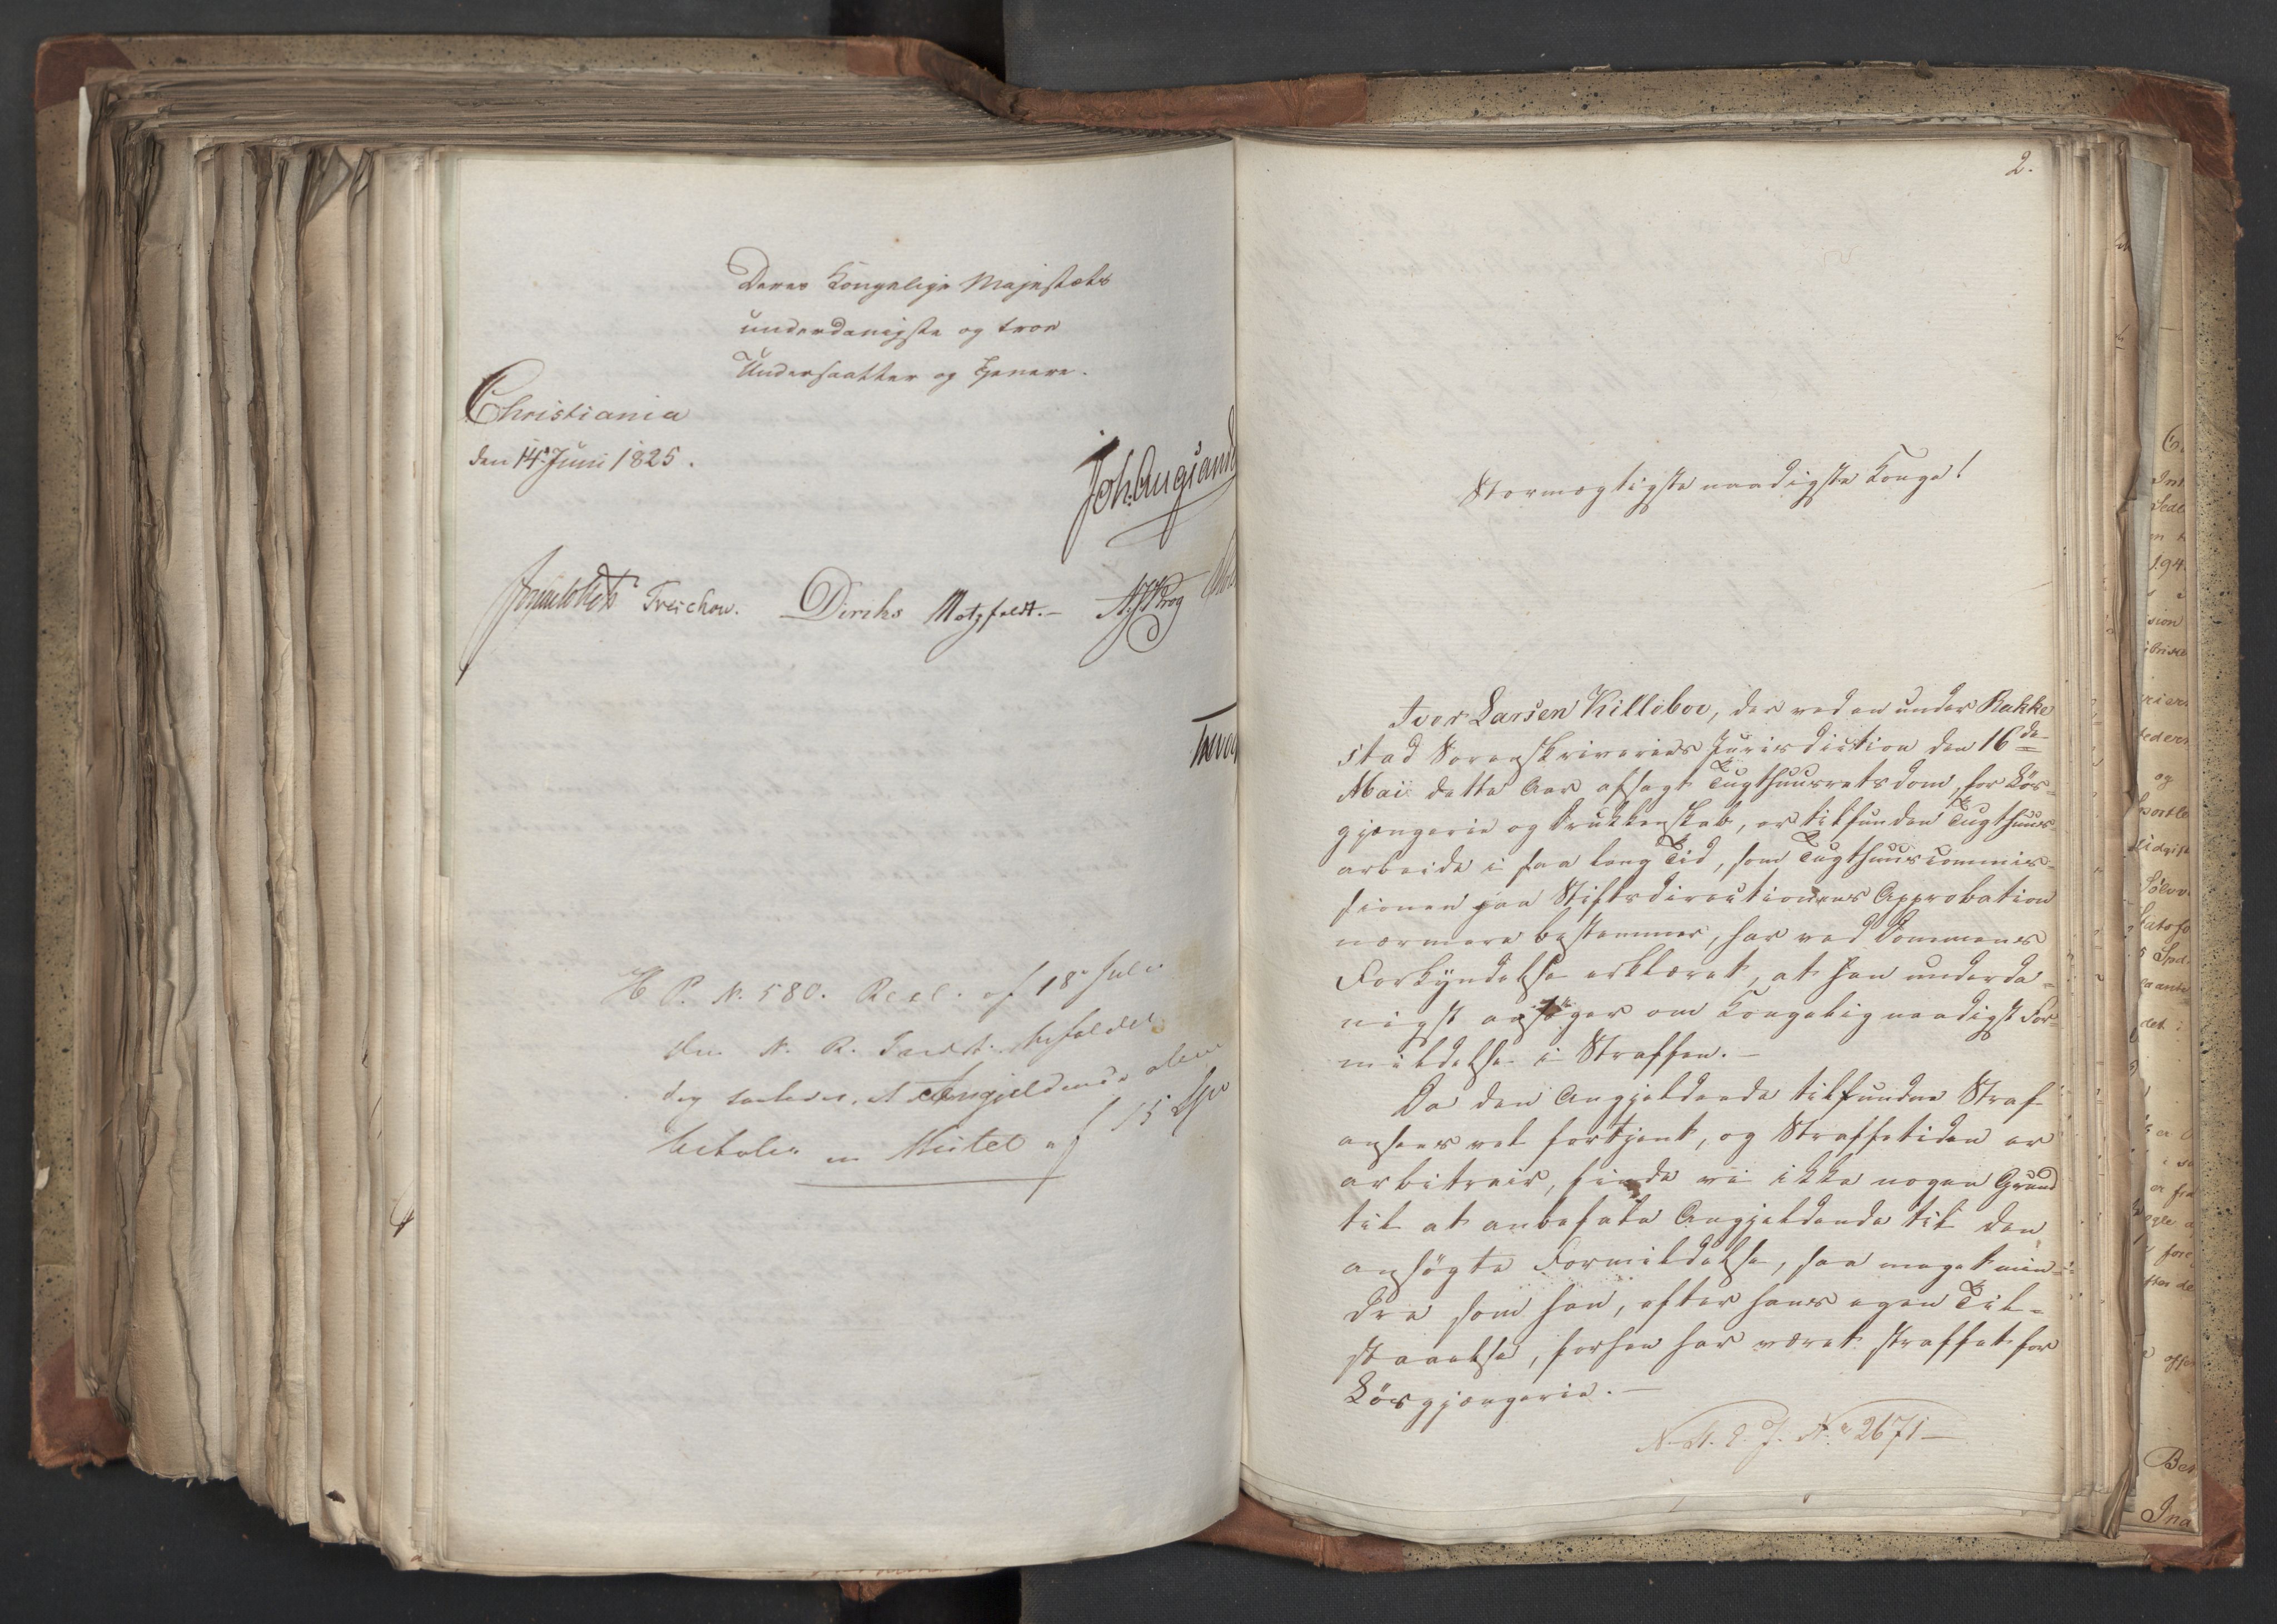 Deres Kongelige Majestæts
underdanigste og troe
Undersaatter og Tjenere.
Christiania
den 14de Juni 1825.
Joh. Aug. Sand
Treschow. Diriks Motzfeldt.- Krog
H P. N. 580. Resl. af 18 Juli
befaldet
dig saaledes, at Angjeldende alene
betaler en Mulct af 15 Spd
2.
Stormægtigste naadigste Konge!
Iver Larsen Killeboe, der ved en under Rakke
stad Sorenskriveries Jurisdiction den 16de
Maii dette Aar afsagt Tugthuusretsdom, for Løs=
gjængerie og Drukkenskab, er tilfunden Tugthuus=
arbeide i saa lang Tid, som Tugthuuscommis=
sionen paa Stiftsdirectionens Approbation
nærmere bestemmer, har ved Dommens
Forkyndelse erklæret, at han underda=
nigst ansøger om Kongelig naadigst For=
mildelse i Straffen.-
Da den Angjeldende tilfundne Straf
ansees vel fortjent, og Straffetiden er
arbitrair, finde vi ikke nogen Grund
til at anbefale Angjeldende til den
ansøgte Formildelse, saa meget min=
dre som han, efter hans egen Til=
staaelse, forhen har været straffet for
Løsgjængerie.-
No 2671-